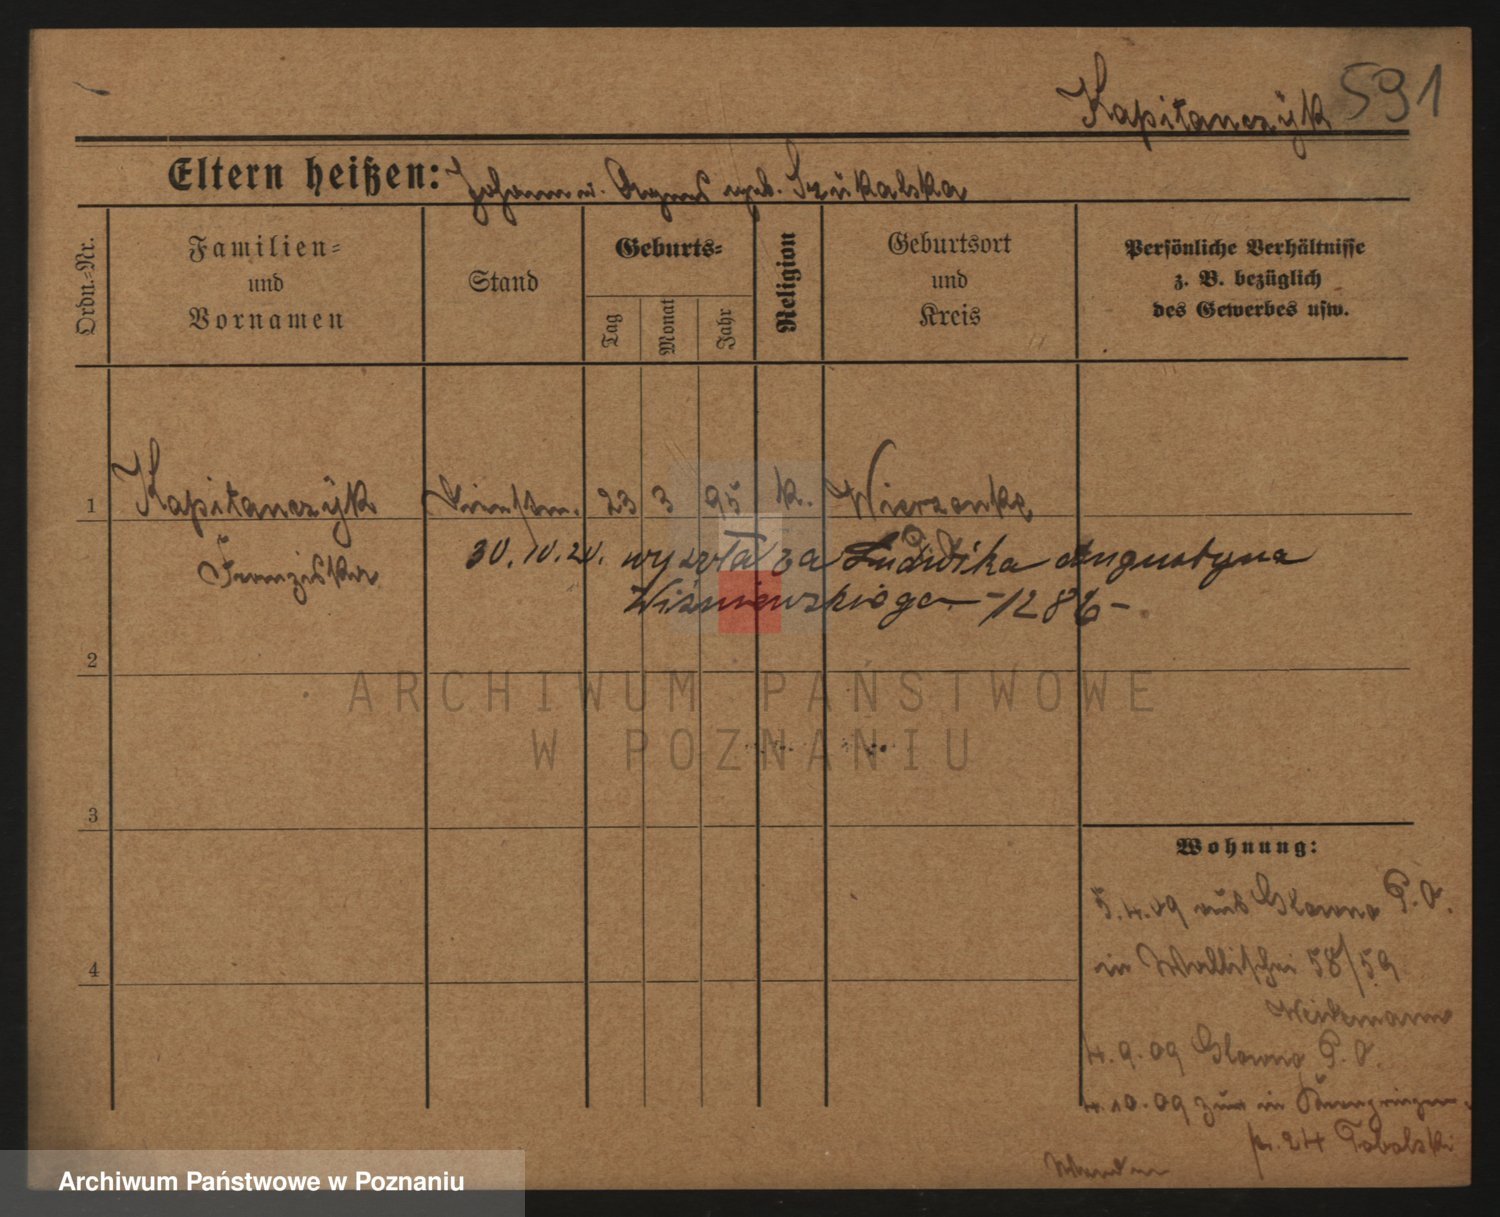 Kapitanczÿk 591
Eltern heißen: Johann u. Agnes geb. Szukalska
Ordn.-Nr.
Familien- und Vornamen
Stand
Geburts-
Tag
Monat
Jahr
Religion
Geburtsort und Kreis
Persönliche Verhältnisse
z. B. bezüglich
des Gewerbes usw.
1 Kapitanczÿk Dienstm. 23 3 95 k. Wierzonke
Franziska
30. IV. 20. wyszła za Ludwika Augustyna
Wiśniewskiego -1286-
2
ARCHIWUM PAŃSTWOWE
W POZNANIU
3
Wohnung:
5.4.09 aus Glowno P.O.
4 in Wallischei 58/59
4.9.09 Glowno P.O.
4.10.09 zur in
24
Archiwum Państwowe w Poznaniu